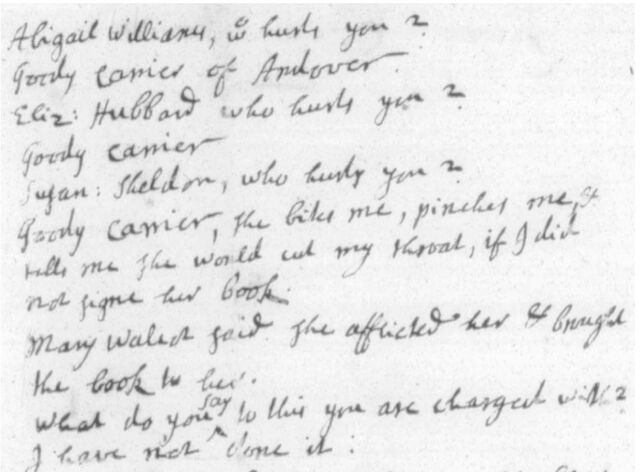 Abigail Williams, wo hurts you?
Goody Carrier of Andover.
Eliz: Hubbard who hurts you?
Goody Carrier
Susan: Sheldon, who hurts you?
Goody Carrier, she bites me, pinches me, &
tells me she would cut my throat, if I did
not signe her book.
Mary Walcot said she afflicted her & brought
the book to her.
What do you say to this you are charged with?
I have not done it.